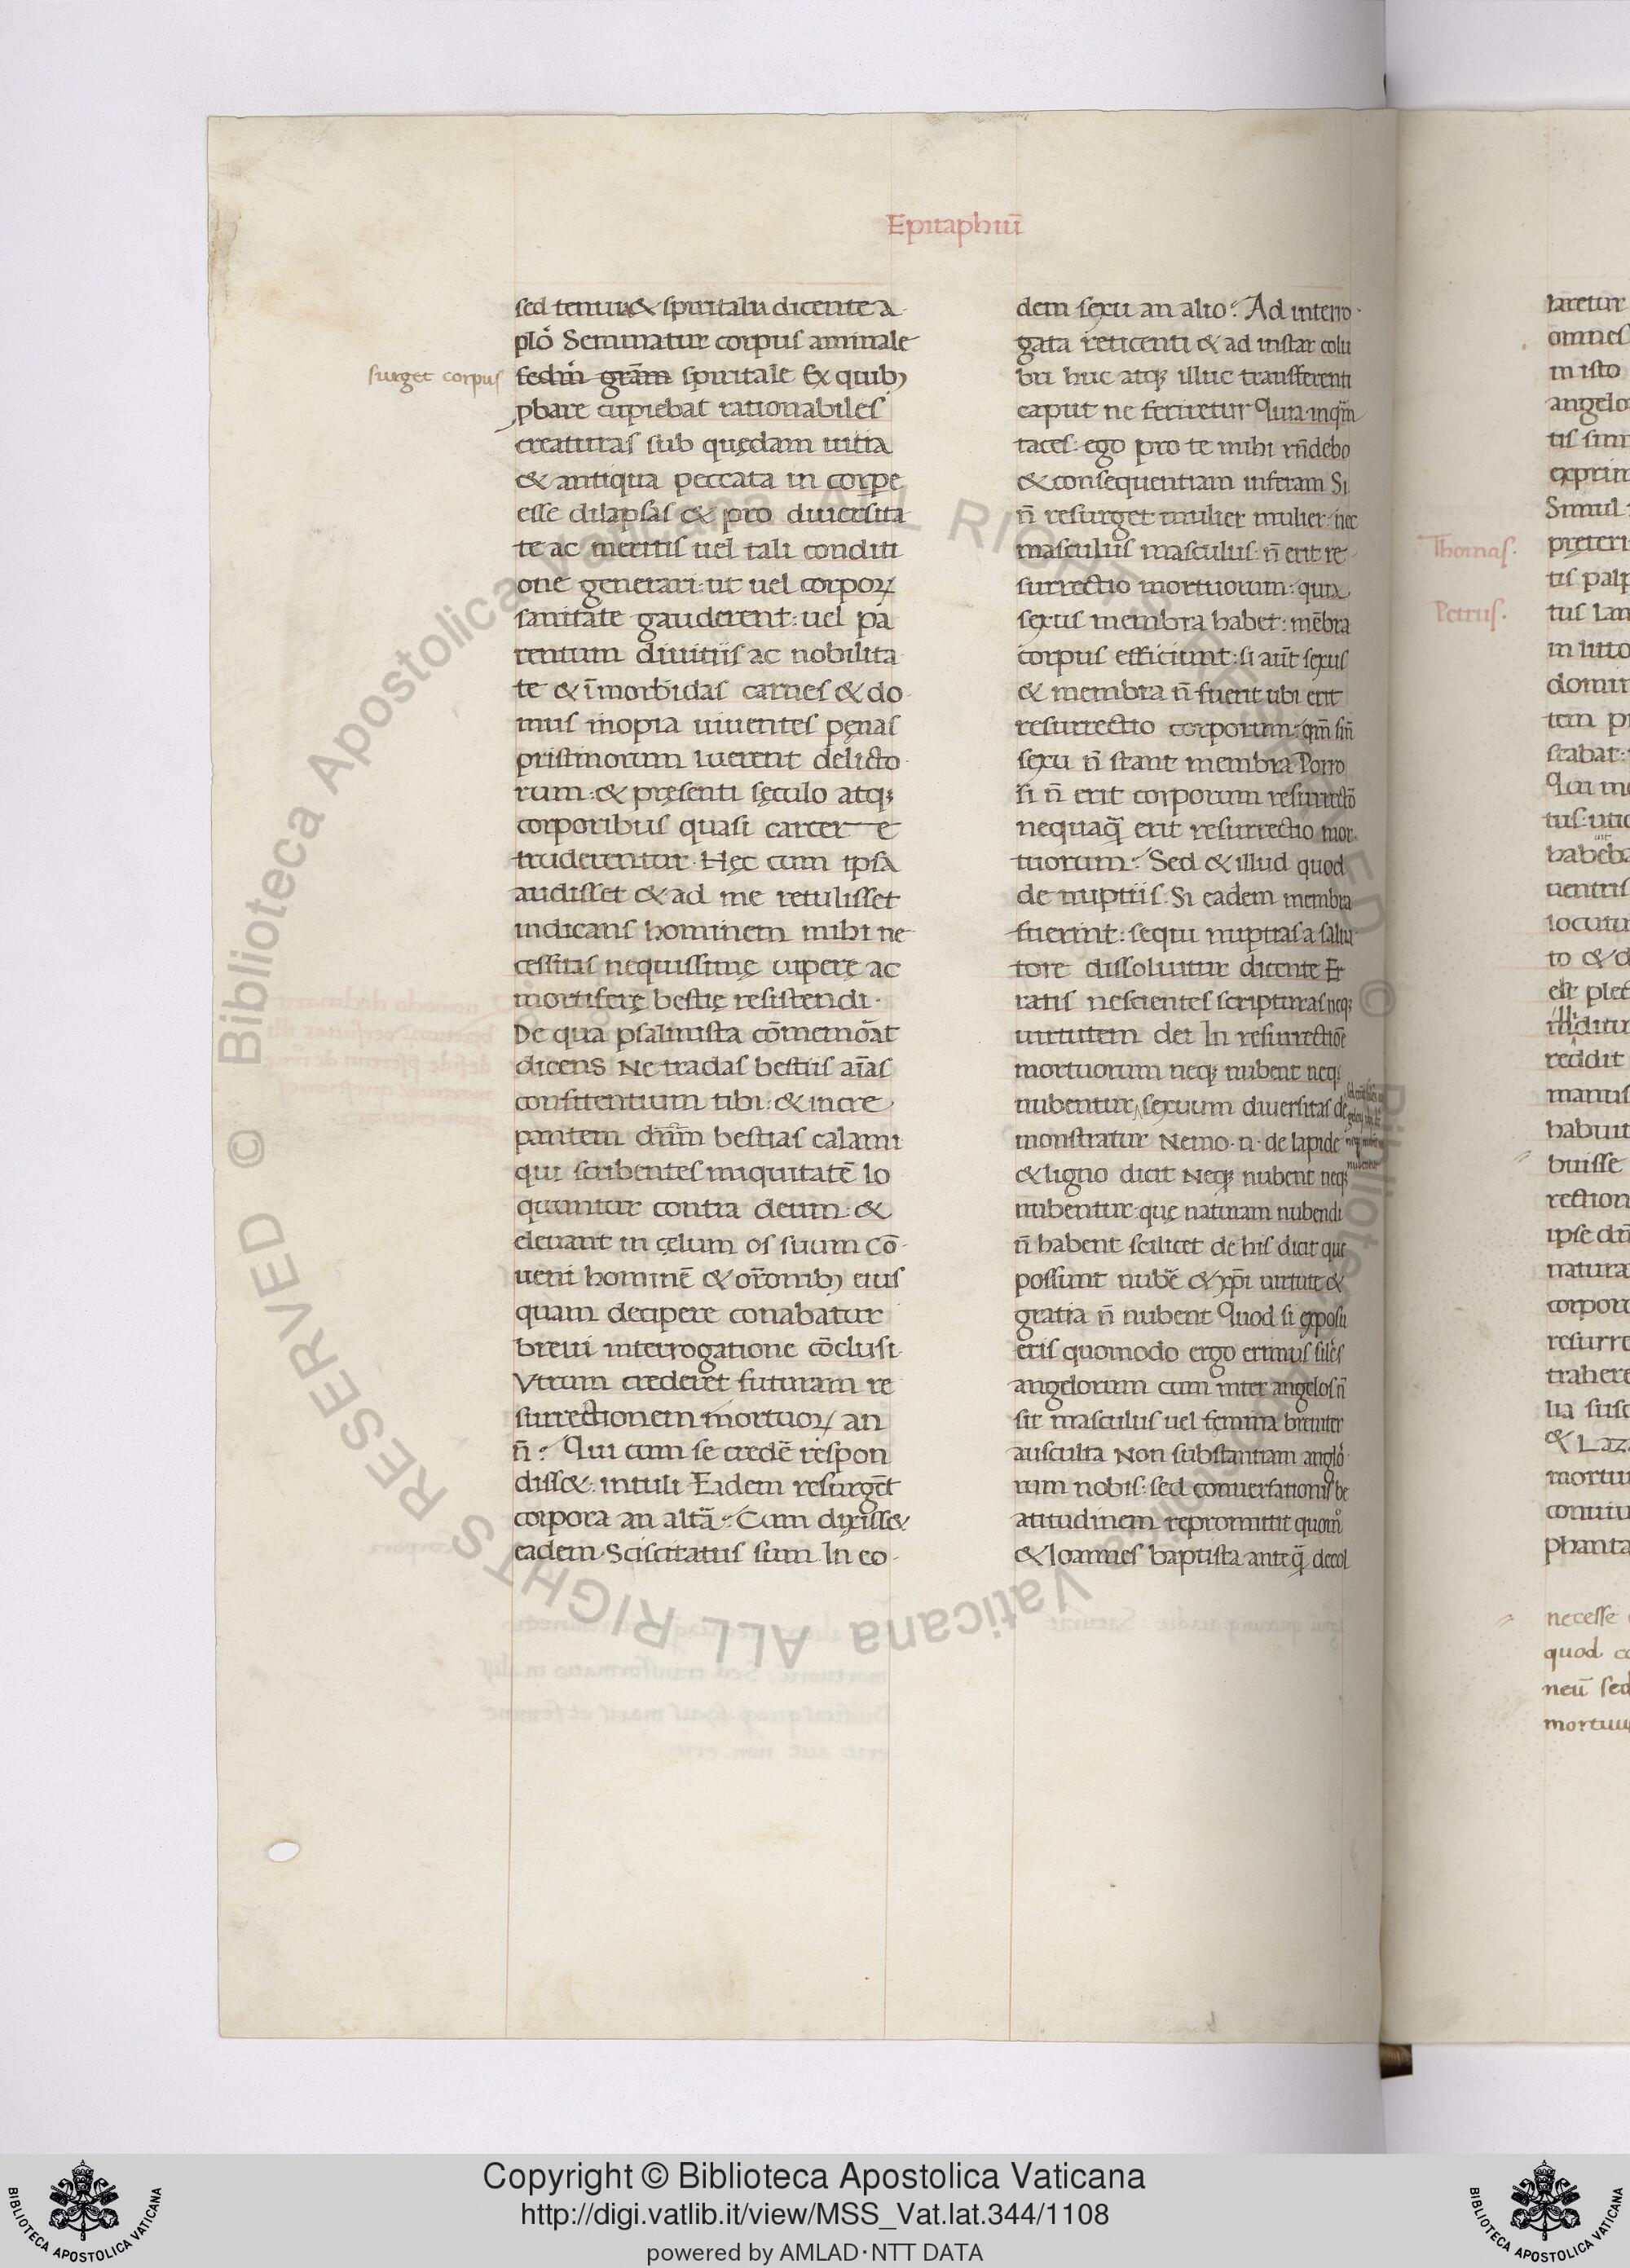 Epitaphiū
sed tenui & spiritali dicente a
plo Seminatur corpus animale
surget corpus
sedm̄ grām spiritale Ex quib;
pbare cupiebat rationabiles
creaturas sub quędam uitia
& antiqua peccata in corpe
esse dilapsas & pro diuersita
te ac meritis uel tali conditi
one generari: ut uel corpoꝝ
sanitate gauderent: uel pa
rentum diuitiis ac nobilita
te & ī morbidas carnes & do
mus inopia uiuentes pęnas
pristinorum luerent delicto
rum: & pręsenti sęculo atq;
corporibus quasi carcer e
truderentur. Hęc cum ipsa
audisset & ad me retulisset
indicans hominem mihi ne
cessitas nequissimę uiperę ac
mortiferę bestię resistendi.
De qua psalmista cōmemorat
dicens Ne tradas bestiis aīas
confitentium tibi: & incre
pantem dn̄m bestias calami
qui scribentes iniquitatē lo
quuntur contra deum. &
eleuant in cęlum os suum Cō
ueni hominē & or̄onib; eius
quam decipere conabatur
breui interrogatione cōclusi
Vtrum crederet futuram re
surrectionem mortuoꝝ an
n̄? Qui cum se credē respon
diss&: intuli Eadem resurgēt
corpora an altā? Cum dixiss&
eadem. Sciscitatus sum In eo
dem sexu an alio? Ad interro
gata reticenti & ad instar colu
bri huc atq; illuc transferenti
caput ne feriretur Quia inquā
taces: ego pro te mihi rn̄debo
& consequentiam inferam Si
n̄ resurget mulier mulier: nec
masculus masculus: n̄ erit re
surrectio mortuorum: quia
sexus membra habet: mēbra
corpus efficiunt: si aut̄ sexus
& membra n̄ fuerit ubi erit
resurrectio corporum: qm̄ sin̄
sexu n̄ stant membra Porro
si n̄ erit corporum resurrectō
nequaq̄ erit resurrectio mor
tuorum? Sed & illud quod
de nuptiis: Si eadem membra
fuerint: sequi nuptias a salua
tore dissoluitur dicente Er
ratis nescientes scripturas neq;
uirtutem dei In resurrectiōe
mortuorum neq; nubent neq;
nubentur, sexuum diuersitas de
monstratur Nemo .n. de lapide
& ligno dicit Neq; nubent neq;
nubentur: quę naturam nubendi
n̄ habent scilicet de his dicit qui
possunt nubē & xp̄i uirtute &
gratia n̄ nubent Quod si exposu
eris quomodo ergo erimus siles
angelorum cum inter angelos n̄
sit masculus uel femina breuiter
ausculta Non substantiam anglo
rum nobis: sed conuersationis be
atitudinem repromittit quom̊
& Ioannes baptista anteq̄ decol
Thomas.
Petrus.
Copyright © Biblioteca Apostolica Vaticana
http://digi.vatlib.it/view/MSS_Vat.lat.344/1108
powered by AMLAD·NTT DATA